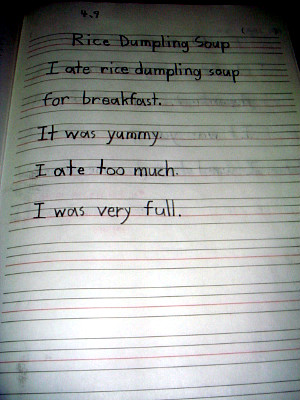 4.9
Rice Dumpling Soup
I ate rice dumpling soup
for breakfast.
It was yummy.
I ate too much.
I was very full.